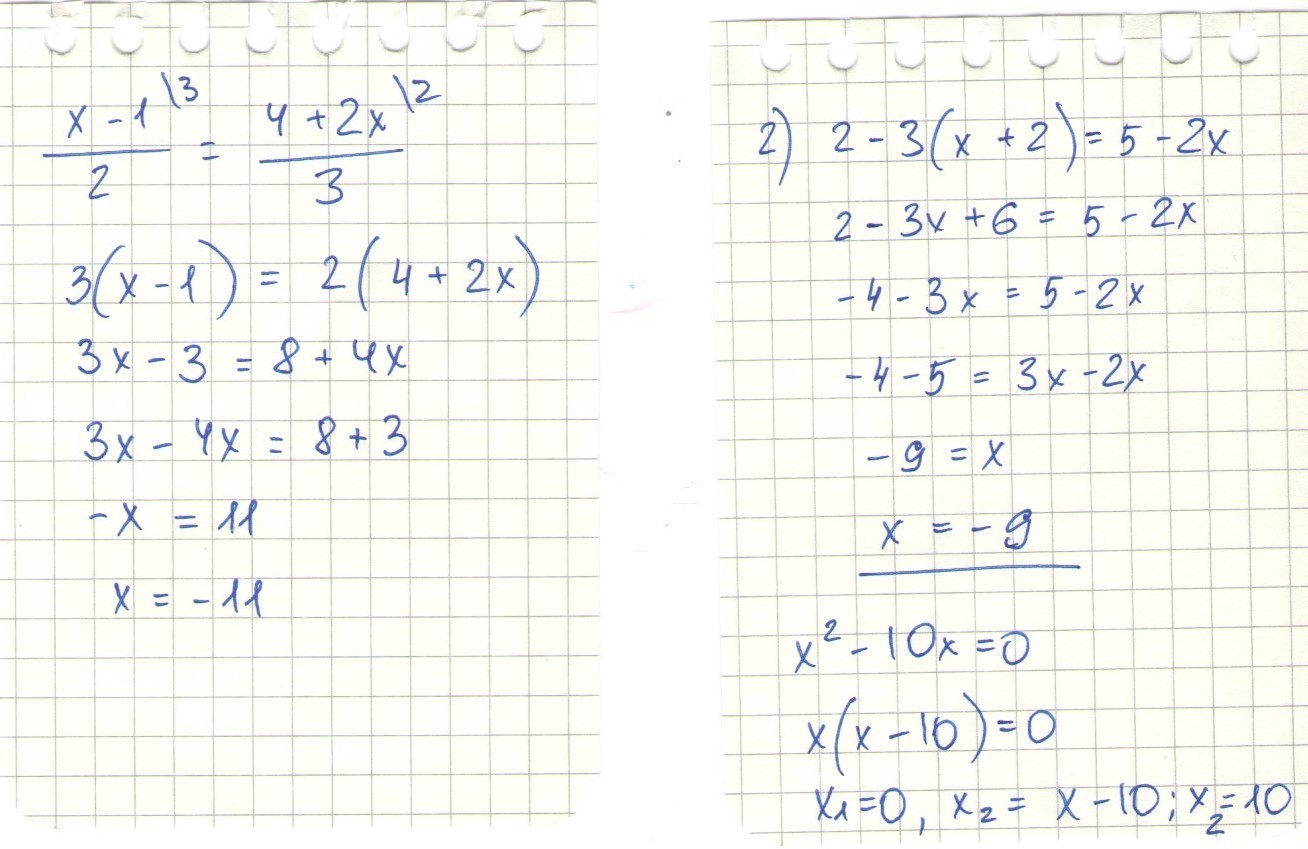 x - 1 \3 / 2 = 4 + 2x \2 / 3
3(x - 1) = 2(4 + 2x)
3x - 3 = 8 + 4x
3x - 4x = 8 + 3
-x = 11
x = -11
2) 2 - 3(x + 2) = 5 - 2x
2 - 3x + 6 = 5 - 2x
-4 - 3x = 5 - 2x
-4 - 5 = 3x - 2x
-9 = x
x = -9
x² - 10x = 0
x(x - 10) = 0
x₁ = 0, x₂ = x - 10; x₂ = 10